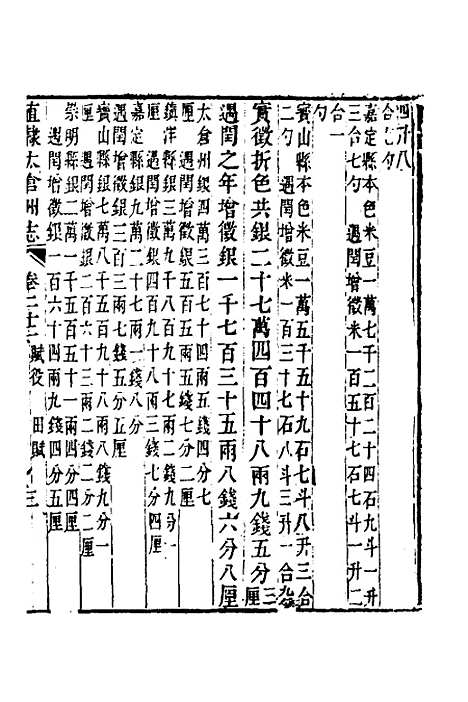 四升八
合七勺
嘉定縣本色米豆一萬七千二百二十四石九斗一升
三合七勺　遇閏增徵米一百五十七石七斗一升二
合一
勺
寳山縣本色米豆一萬五千五十九石七斗八升三合
二勺　遇閏增徵米一百三十七石八斗三升一合
實徵折色共銀二十七萬四百四十八兩九錢五分三
厘
遇閏之年增徵銀一千七百三十五兩八錢六分八厘
太倉州銀四萬三百七十四兩五錢四分七
厘　遇閏增徵銀二百五十五兩七錢二厘
鎮洋縣銀三萬九千八百九十七兩二錢九分一
厘　遇閏增徵銀四百九十八兩三錢七分四厘
嘉定縣銀九萬二十七兩一錢八分
遇閏增徵銀三百三兩七錢五分五厘
寳山縣銀七萬八千五百九十八兩五錢九分一
厘　遇閏增徵銀四百一十三兩二錢二分二厘
崇明縣銀二萬一千五百五十一兩四分四厘
遇閏增徵銀二百六十四兩九錢四分五厘
直隸太倉州志　卷二十二　賦役　田賦　三